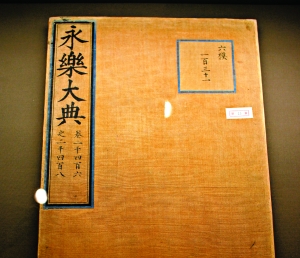 永樂大典
卷二千四百六
之二千四百八
六模
一百三十一